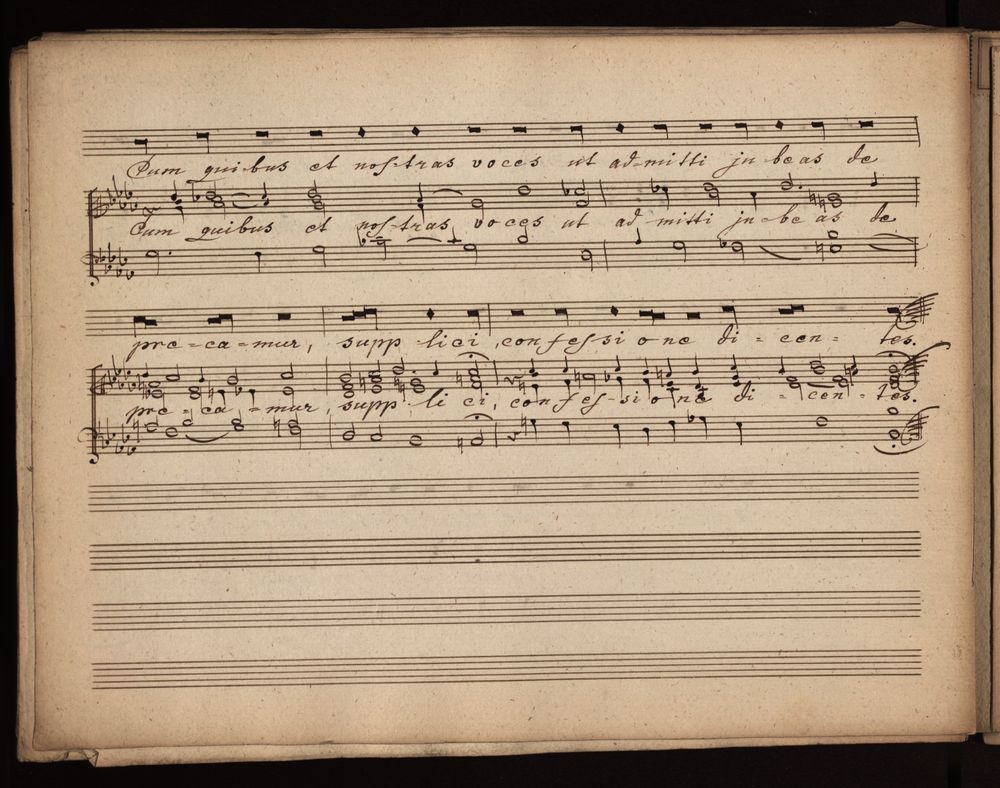 Cum qui-bus et nos-tras voces ut ad-mitti ju-beas de
Cum quibus et nos-tras voces ut ad mitti ju-be as de
pre-ca-mur, supp-lici, confes-si o ne di-cen-tes.
pre-ca-mur, supp-li ci, con fes-si o ne di-cen-tes.